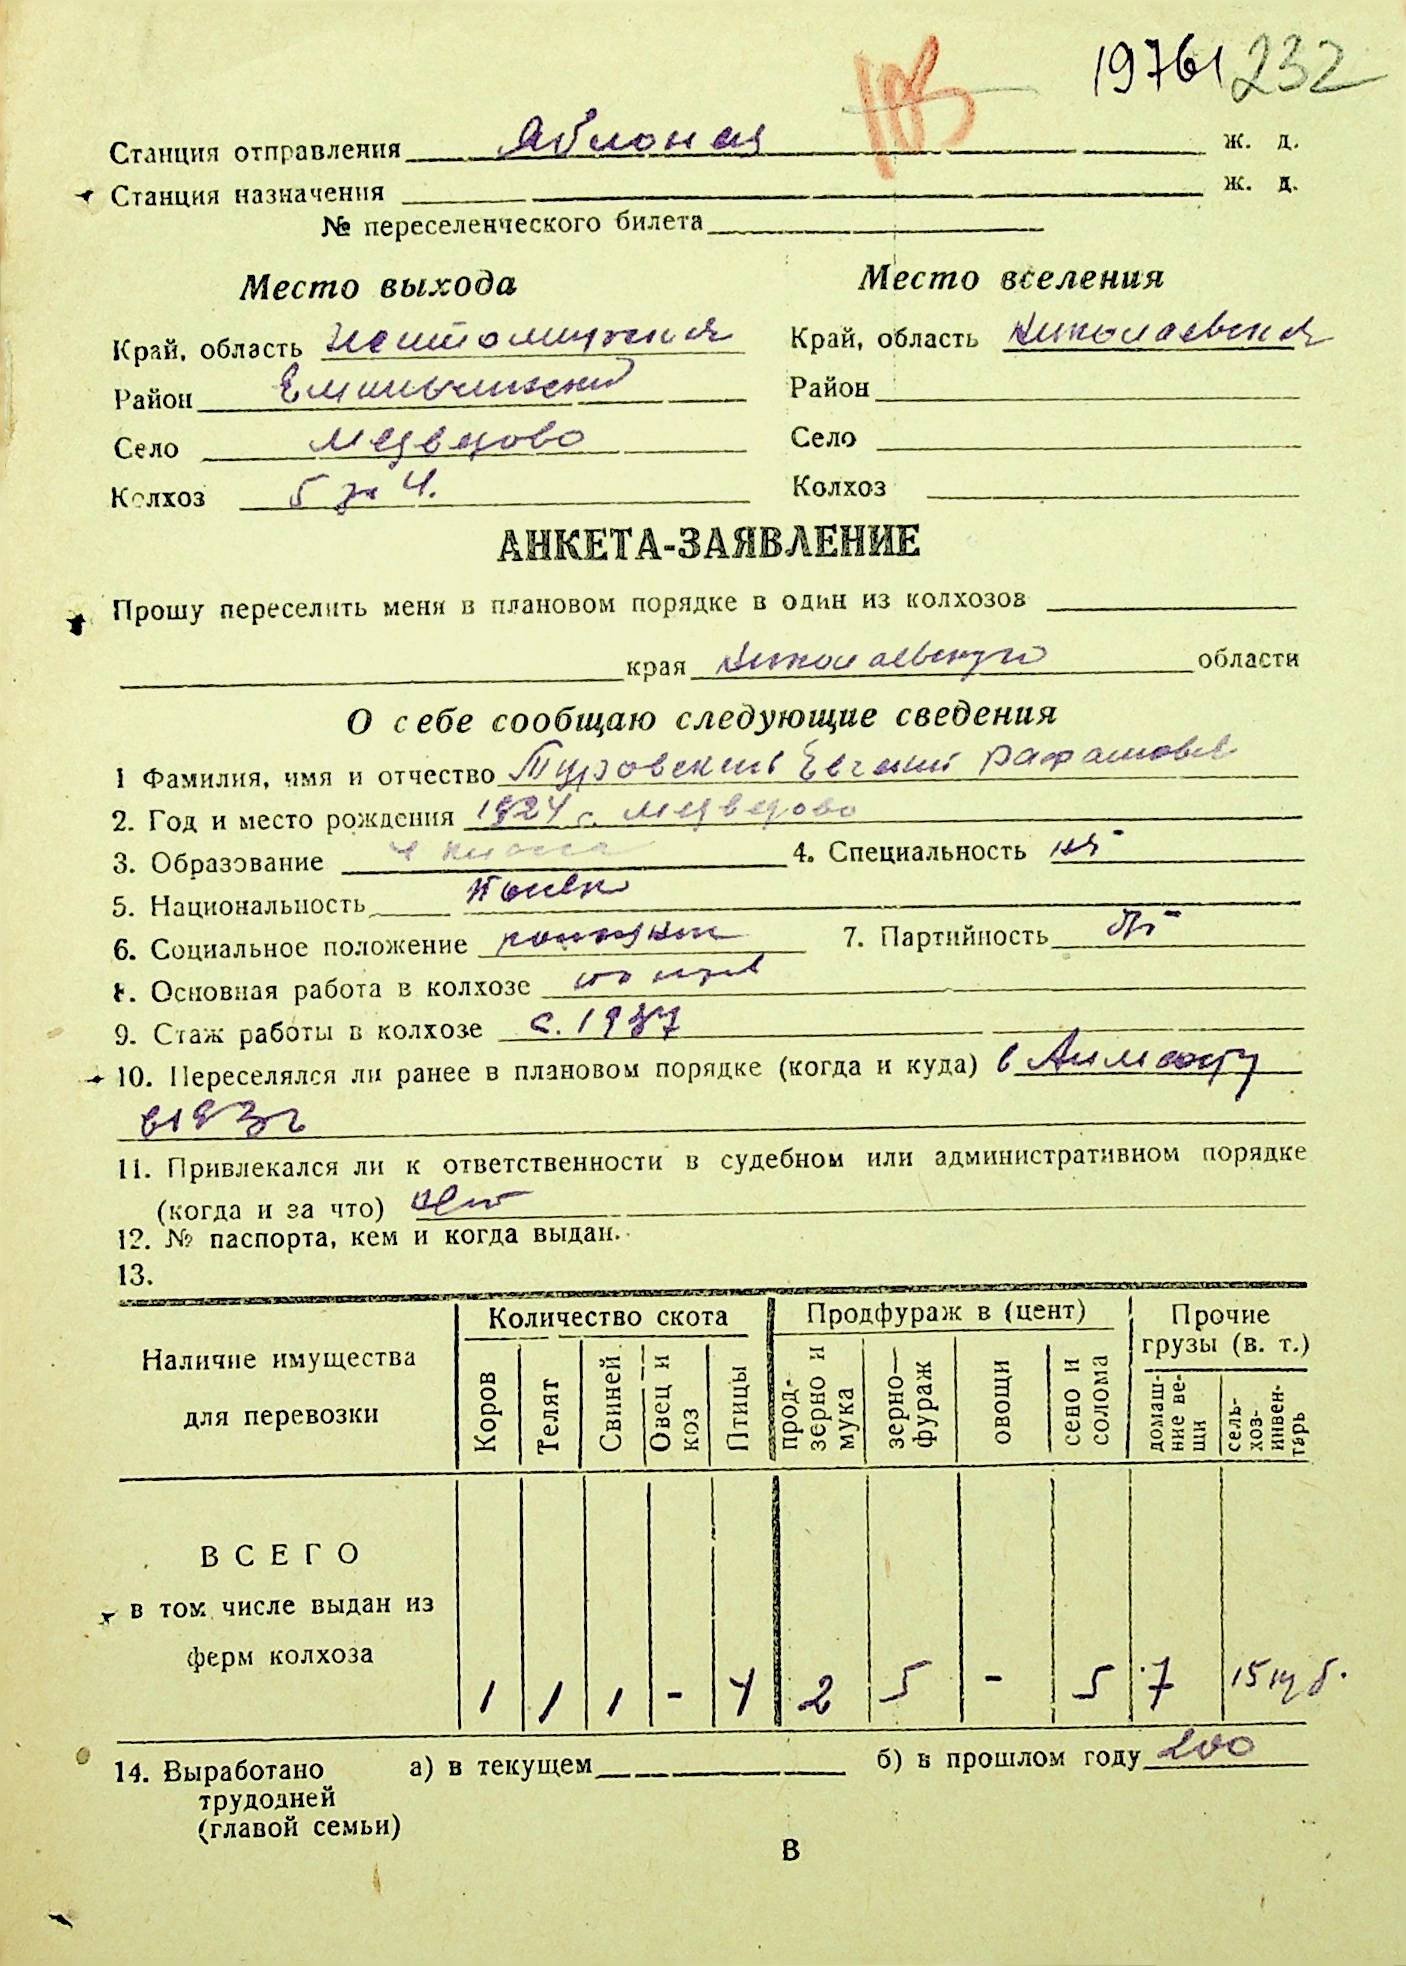 19761 232
103
Станция отправления Яблоная ж. д.
Станция назначения ж. д.
№ переселенческого билета
Место выхода
Край, область Житомирская
Район Емильчинский
Село Медведово
Колхоз 5 за 4.
Место вселения
Край, область Николаевская
Район
Село
Колхоз
АНКЕТА-ЗАЯВЛЕНИЕ
Прошу переселить меня в плановом порядке в один из колхозов
края Николаевскую области
О себе сообщаю следующие сведения
1 Фамилия, имя и отчество Туровский Евгений
2. Год и место рождения 1924 г. Медведово
3. Образование 4 класса 4. Специальность
5. Национальность
6. Социальное положение колхозник 7. Партийность
8. Основная работа в колхозе
9. Стаж работы в колхозе с. 1937
10. Переселялся ли ранее в плановом порядке (когда и куда) в
11. Привлекался ли к ответственности в судебном или административном порядке
(когда и за что) нет
12. № паспорта, кем и когда выдан.
13.
Наличие имущества для перевозки
Количество скота
Продфураж в (цент)
Прочие грузы (в. т.)
Коров
Телят
Свиней
Овец и коз
Птицы
прод-зерно и мука
зерно—фураж
овощи
сено и солома
домаш-ние ве-щи
сель-хоз-инвен-тарь
ВСЕГО
в том числе выдан из
ферм колхоза
1 1 1 - 4 2 5 - 5 7 15 куб.
14. Выработано а) в текущем б) в прошлом году 200
трудодней
(главой семьи)
В